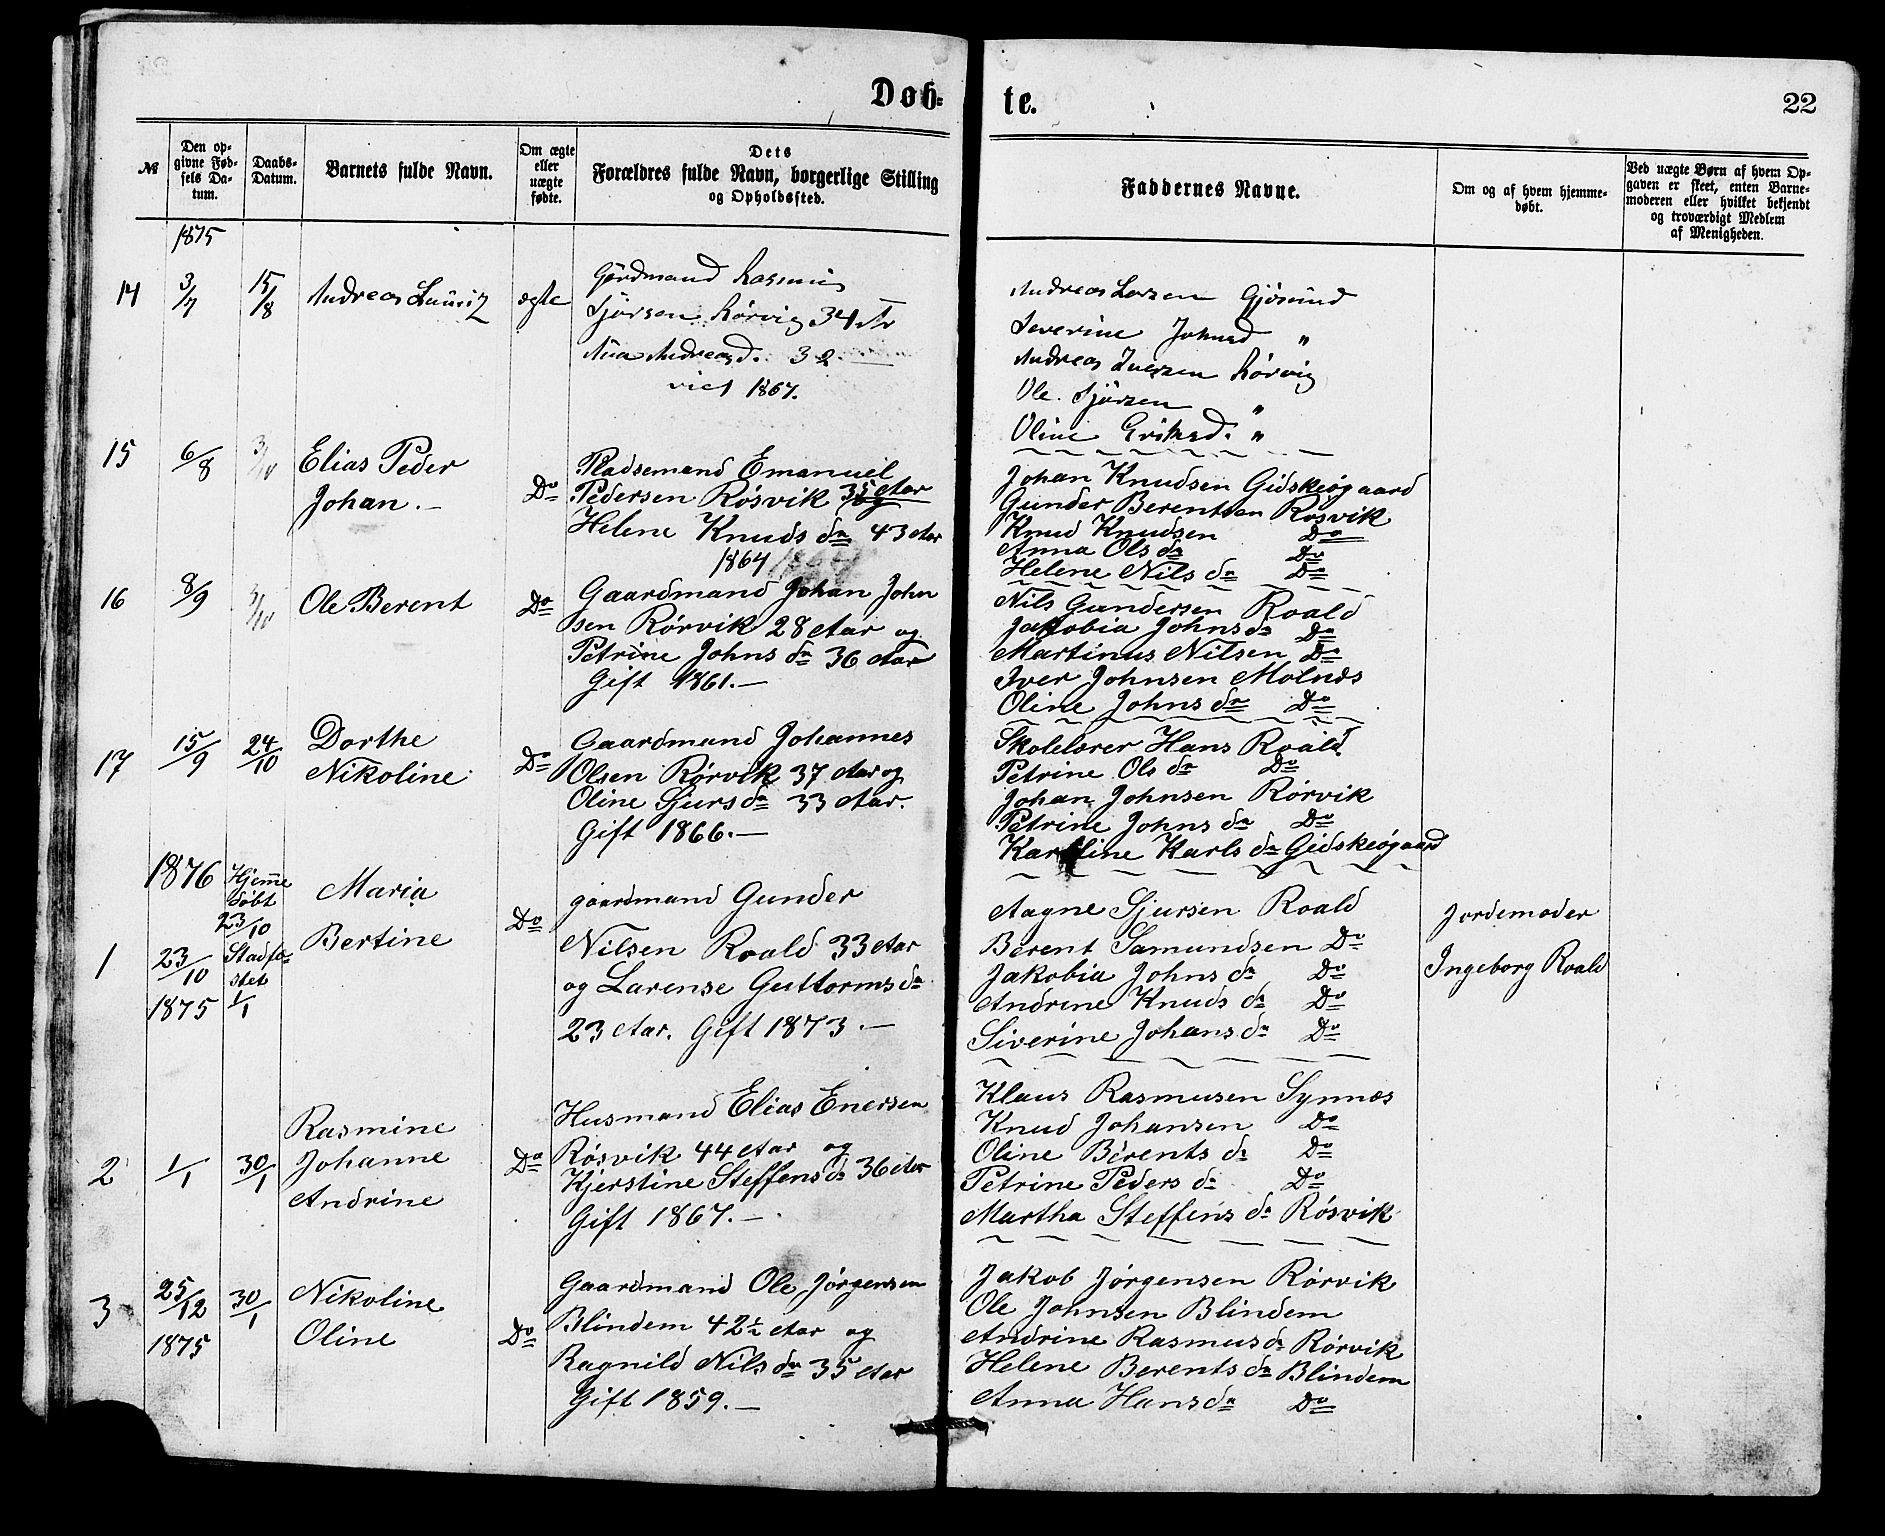 Døb-
te.
22
№
Den op-
givne Fød-
sels Da-
tum.
Daabs-
Datum.
Barnets fulde Navn.
Om ægte
eller
uægte
fødte.
Dets
Forældres fulde Navn, borgerlige Stilling
og Opholdssted.
Faddernes Navne.
Om og af hvem hjemme-
døbt.
Ved uægte Børn af hvem Op-
gaven er skeet, enten Barne-
moderen eller hvilket bekjendt
og troværdigt Medlem
af Menigheden.
1875
14
3/7
15/8
Andreas Lauritz
ægte
Gårdmand Rasmus
Sjursen Rørvig 34
Ana Andreasd. 32
viet 1867.
Andreas Larsen Gjøsund
Severine Johnsd "
Andreas Iversen Rørvig
Ole Sjursen "
Oline Eriksd. "
15
6/8
3/10
Elias Peder
Johan.
Do
Pladsemand Emanuel
Pedersen Røsvik 35 Aar
Helene Knuds dr 43 Aar
1864 1864
Johan Knudsen Gidskeøgaard
Gunder Berentsen Røsvik
Knud Knudsen Do
Anna Ols dr Do
Helene Nils dr Do
16
8/9
3/10
Ole Berent
Do
Gaardmand Johan John
sen Rørvik 28 Aar og
Petrine Johns dr 36 Aar
Gift 1861.
Nils Gundersen Roald
Jakobia Johns dr Do
Martinus Nilsen Do
Iver Johnsen Molnes
Oline Johns dr Do
17
15/9
24/10
Dorthe
Nikoline
Do
Gaardmand Johannes
Olsen Rørvik 37 Aar og
Oline Sjurs dr 33 Aar.
Gift 1866.
Skolelærer Hans Roald
Petrine Ols dr Do
Johan Johnsen Rørvik
Petrine Johns dr Do
Karoline Karls dr Gidskeøgaard
1876
1
23/10
1875
Hjemme
døbt
23/10
Stadfæ-
stet
1/1
Maria
Bertine
Do
gaardmand Gunder
Nilsen Roald 33 Aar
og Larense Guttorms dr
23 Aar. Gift 1873.
Aagne Sjursen Roald
Berent Samundsen Do
Jakobia Johns dr Do
Andrine Knuds dr Do
Siverine Johans dr Do
Jordemoder
Ingeborg Roald
2
1/1
30/1
Rasmine
Johanne
Andrine
Do
Husmand Elias Enersen
Røsvik 44 Aar og
Kjerstine Steffens dr 36 Aar
Gift 1867.
Klaus Rasmusen Synnes
Knud Johansen Do
Oline Berents dr Do
Petrine Peders dr Do
Martha Steffens dr Røsvik
3
25/12
1875
30/1
Nikoline
Oline
Do
Gaardmand Ole Jørgensen
Blindem 42½ Aar og
Ragnild Nils dr 35 Aar
Gift 1859.
Jakob Jørgensen Rørvik
Ole Johnsen Blindem
Andrine Rasmus dr Rørvik
Helene Berents dr Blindem
Anna Hans dr Do